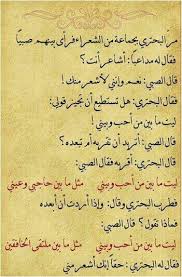 مر البحتري بجماعة من الشعراء فرأى بينهم صبياً
فقال له مداعباً: أشاعر أنت؟
قال الصبي: نعم وإنني لأشعر منك!
فقال البحتري: هل تستطيع أن تجيز قولي:
ليت ما بين من أحب وبيني
قال الصبي: أتريد أن تقربه أم تبعده؟
فقال البحتري: أقربه فقال الصبي:
ليت ما بين من أحب وبيني مثل ما بين حاجبي وعيني
فطرب البحتري وقال: وإذا أردت أن أبعده
فماذا تقول؟ قال الصبي:
ليت ما بين من أحب وبيني مثل ما بين ملتقى الخافقين
فقال البحتري: حقاً إنك أشعر مني